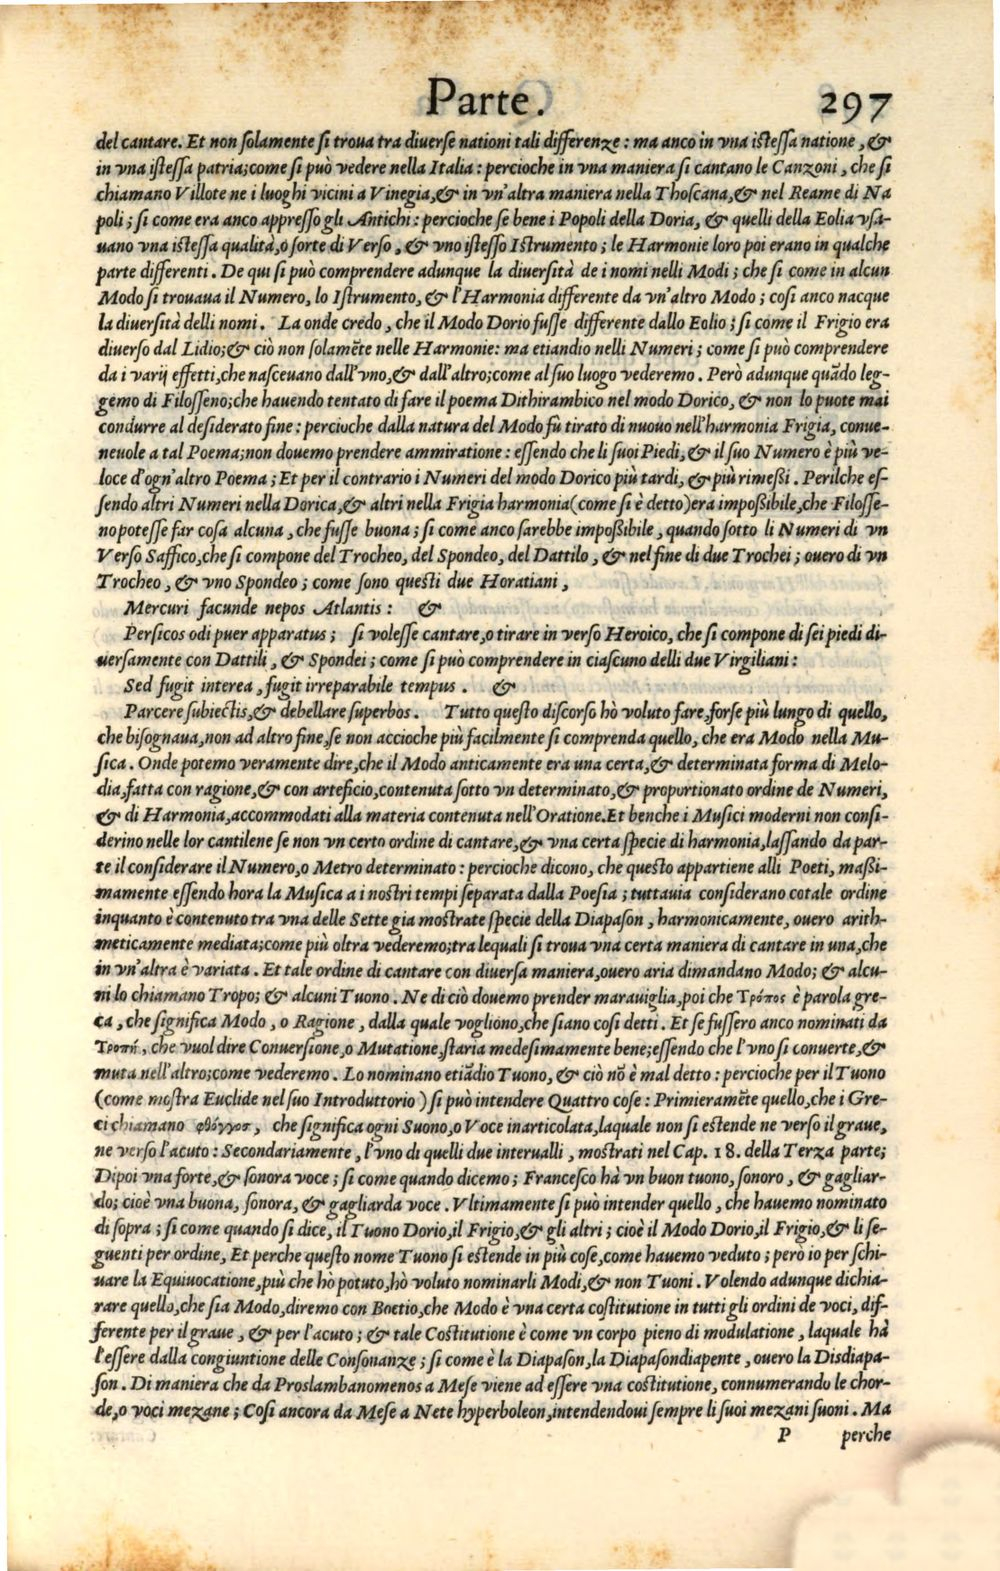 Parte. 297
del cantare. Et non ſolamente ſi troua tra diuerſe nationi tali differenze: ma anco in vna iſteſſa natione, &
in vna iſteſſa patria; come ſi può vedere nella Italia: percioche in vna maniera ſi cantano le Canzoni, che ſi
chiamano Villote ne i luoghi vicini a Vinegia, & in vn'altra maniera nella Thoſcana, & nel Reame di Na
poli; ſi come era anco appreſſo gli Antichi: percioche ſe bene i Popoli della Doria, & quelli della Eolia vſa-
uano vna iſteſſa qualità, o ſorte di Verſo, & vno iſteſſo Iſtrumento; le Harmonie loro poi erano in qualche
parte differenti. De qui ſi può comprendere adunque la diuerſità de i nomi nelli Modi; che ſi come in alcun
Modo ſi trouaua il Numero, lo Iſtrumento, & l'Harmonia differente da vn'altro Modo; coſi anco nacque
la diuerſità delli nomi. La onde credo, che il Modo Dorio fuſſe differente dallo Eolio; ſi come il Frigio era
diuerſo dal Lidio; & ciò non ſolamẽte nelle Harmonie: ma etiandio nelli Numeri; come ſi può comprendere
da i varij effetti, che naſceuano dall'vno, & dall'altro; come al ſuo luogo vederemo. Però adunque quãdo leg-
gemo di Filoſſeno; che hauendo tentato di fare il poema Dithirambico nel modo Dorico, & non lo puote mai
condurre al deſiderato fine: percioche dalla natura del Modo fù tirato di nuouo nell'harmonia Frigia, conue-
neuole a tal Poema; non douemo prendere ammiratione: eſſendo che li ſuoi Piedi, & il ſuo Numero è più ve-
loce d'ogn'altro Poema; Et per il contrario i Numeri del modo Dorico più tardi, & più rimeßi. Perilche eſ-
ſendo altri Numeri nella Dorica, & altri nella Frigia harmonia (come ſi è detto) era impoßibile, che Filoſſe-
no poteſſe far coſa alcuna, che fuſſe buona; ſi come anco ſarebbe impoßibile, quando ſotto li Numeri di vn
Verſo Saffico, che ſi compone del Trocheo, del Spondeo, del Dattilo, & nel fine di due Trochei; ouero di vn
Trocheo, & vno Spondeo; come ſono queſti due Horatiani,
Mercuri facunde nepos Atlantis: &
Perſicos odi puer apparatus; ſi voleſſe cantare, o tirare in verſo Heroico, che ſi compone di ſei piedi di-
uerſamente con Dattili, & Spondei; come ſi può comprendere in ciaſcuno delli due Virgiliani:
Sed fugit interea, fugit irreparabile tempus. &
Parcere ſubiectis, & debellare ſuperbos. Tutto queſto diſcorſo hò voluto fare, forſe più lungo di quello,
che biſognaua, non ad altro fine, ſe non accioche più facilmente ſi comprenda quello, che era Modo nella Mu-
ſica. Onde potemo veramente dire, che il Modo anticamente era una certa, & determinata forma di Melo-
dia, fatta con ragione, & con arteficio, contenuta ſotto vn determinato, & proportionato ordine de Numeri,
& di Harmonia, accommodati alla materia contenuta nell'Oratione. Et benche i Muſici moderni non conſi-
derino nelle lor cantilene ſe non vn certo ordine di cantare, & vna certa ſpecie di harmonia, laſſando da par-
te il conſiderare il Numero, o Metro determinato: percioche dicono, che queſto appartiene alli Poeti, maßi-
mamente eſſendo hora la Muſica a i noſtri tempi ſeparata dalla Poeſia; tuttauia conſiderano cotale ordine
inquanto è contenuto tra vna delle Sette gia moſtrate ſpecie della Diapaſon, harmonicamente, ouero arith-
meticamente mediata; come più oltra vederemo; tra lequali ſi troua vna certa maniera di cantare in una, che
in vn'altra è variata. Et tale ordine di cantare con diuerſa maniera, ouero aria dimandano Modo; & alcu-
ni lo chiamano Tropo; & alcuni Tuono. Ne di ciò douemo prender marauiglia, poi che Τρόπος è parola gre-
ca, che ſignifica Modo, o Ragione, dalla quale vogliono, che ſiano coſi detti. Et ſe fuſſero anco nominati da
Τροπή, che vuol dire Conuerſione, o Mutatione, ſtaria medeſimamente bene; eſſendo che l'vno ſi conuerte, &
muta nell'altro; come vederemo. Lo nominano etiãdio Tuono, & ciò nõ è mal detto: percioche per il Tuono
(come moſtra Euclide nel ſuo Introduttorio) ſi può intendere Quattro coſe: Primieramẽte quello, che i Gre-
ci chiamano φθόγγος, che ſignifica ogni Suono, o Voce inarticolata, laquale non ſi eſtende ne verſo il graue,
ne verſo l'acuto: Secondariamente, l'vno di quelli due interualli, moſtrati nel Cap. 18. della Terza parte;
Dipoi vna forte, & ſonora voce; ſi come quando dicemo; Franceſco hà vn buon tuono, ſonoro, & gagliar-
do; cioè vna buona, ſonora, & gagliarda voce. Vltimamente ſi può intender quello, che hauemo nominato
di ſopra; ſi come quando ſi dice, il Tuono Dorio, il Frigio, & gli altri; cioè il Modo Dorio, il Frigio, & li ſe-
guenti per ordine, Et perche queſto nome Tuono ſi eſtende in più coſe, come hauemo veduto; però io per ſchi-
uare la Equiuocatione, più che hò potuto, hò voluto nominarli Modi, & non Tuoni. Volendo adunque dichia-
rare quello, che ſia Modo, diremo con Boetio, che Modo è vna certa coſtitutione in tutti gli ordini de voci, dif-
ferente per il graue, & per l'acuto; & tale Coſtitutione è come vn corpo pieno di modulatione, laquale hà
l'eſſere dalla congiuntione delle Conſonanze; ſi come è la Diapaſon, la Diapaſondiapente, ouero la Disdiapa-
ſon. Di maniera che da Proslambanomenos a Meſe viene ad eſſere vna coſtitutione, connumerando le chor-
de, o voci mezane; Coſi ancora da Meſe a Nete hyperboleon, intendendoui ſempre li ſuoi mezani ſuoni. Ma
P perche